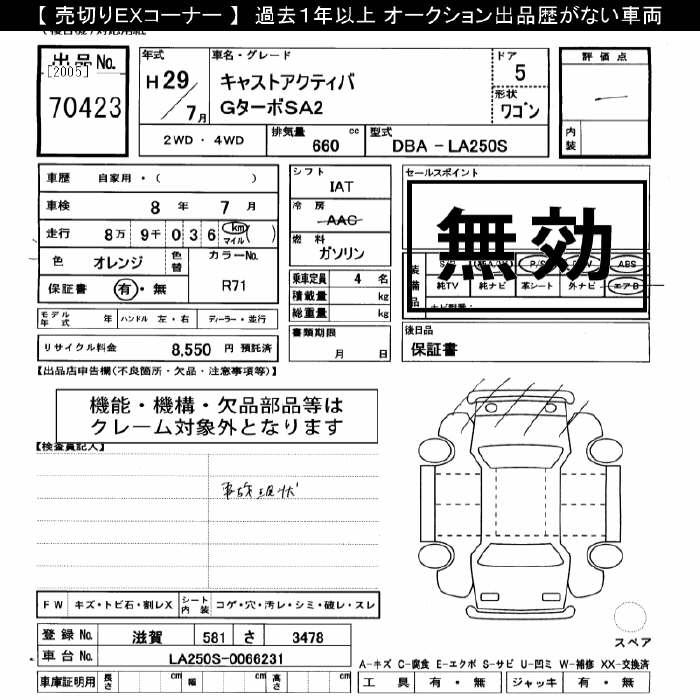 【 売切りEXコーナー 】 過去1年以上 オークション出品歴がない車両
出品No.
[2005]
70423
年式
H29/7月
車名・グレード
キャストアクティバ
GターボSA2
ドア
5
形状
ワゴン
評価点
内装
2WD・4WD
排気量 660 cc
型式 DBA - LA250S
車歴 自家用・( )
車検 8 年 7 月
走行 8万 9千 0 3 6 km マイル ( )
色 オレンジ 色替
カラーNo.
R71
保証書 有・無
シフト
IAT
冷房
AAC
燃料
ガソリン
乗車定員 4 名
積載量 kg
総重量 kg
セールスポイント
無効
装備品
P/S
ABS
純TV 純ナビ 革シート 外ナビ エアB
モデル年式 年 ハンドル 左・右 ディーラー・並行
書類期限
月 日
後日品
保証書
リサイクル料金 8,550 円 預託済
【出品店申告欄(不良箇所・欠品・注意事項等)】
機能・機構・欠品部品等は
クレーム対象外となります
【検査員記入】
事故現状
FW キズ・トビ石・割レX シート内装 コゲ・穴・汚レ・シミ・破レ・スレ
登録No. 滋賀 581 さ 3478
車台No. LA250S-0066231
車庫証明用 長さ cm 幅 cm 高さ cm
スペア
A-キズ C-腐食 E-エクボ S-サビ U-凹ミ W-補修 XX-交換済
工具 有・無 ジャッキ 有・無